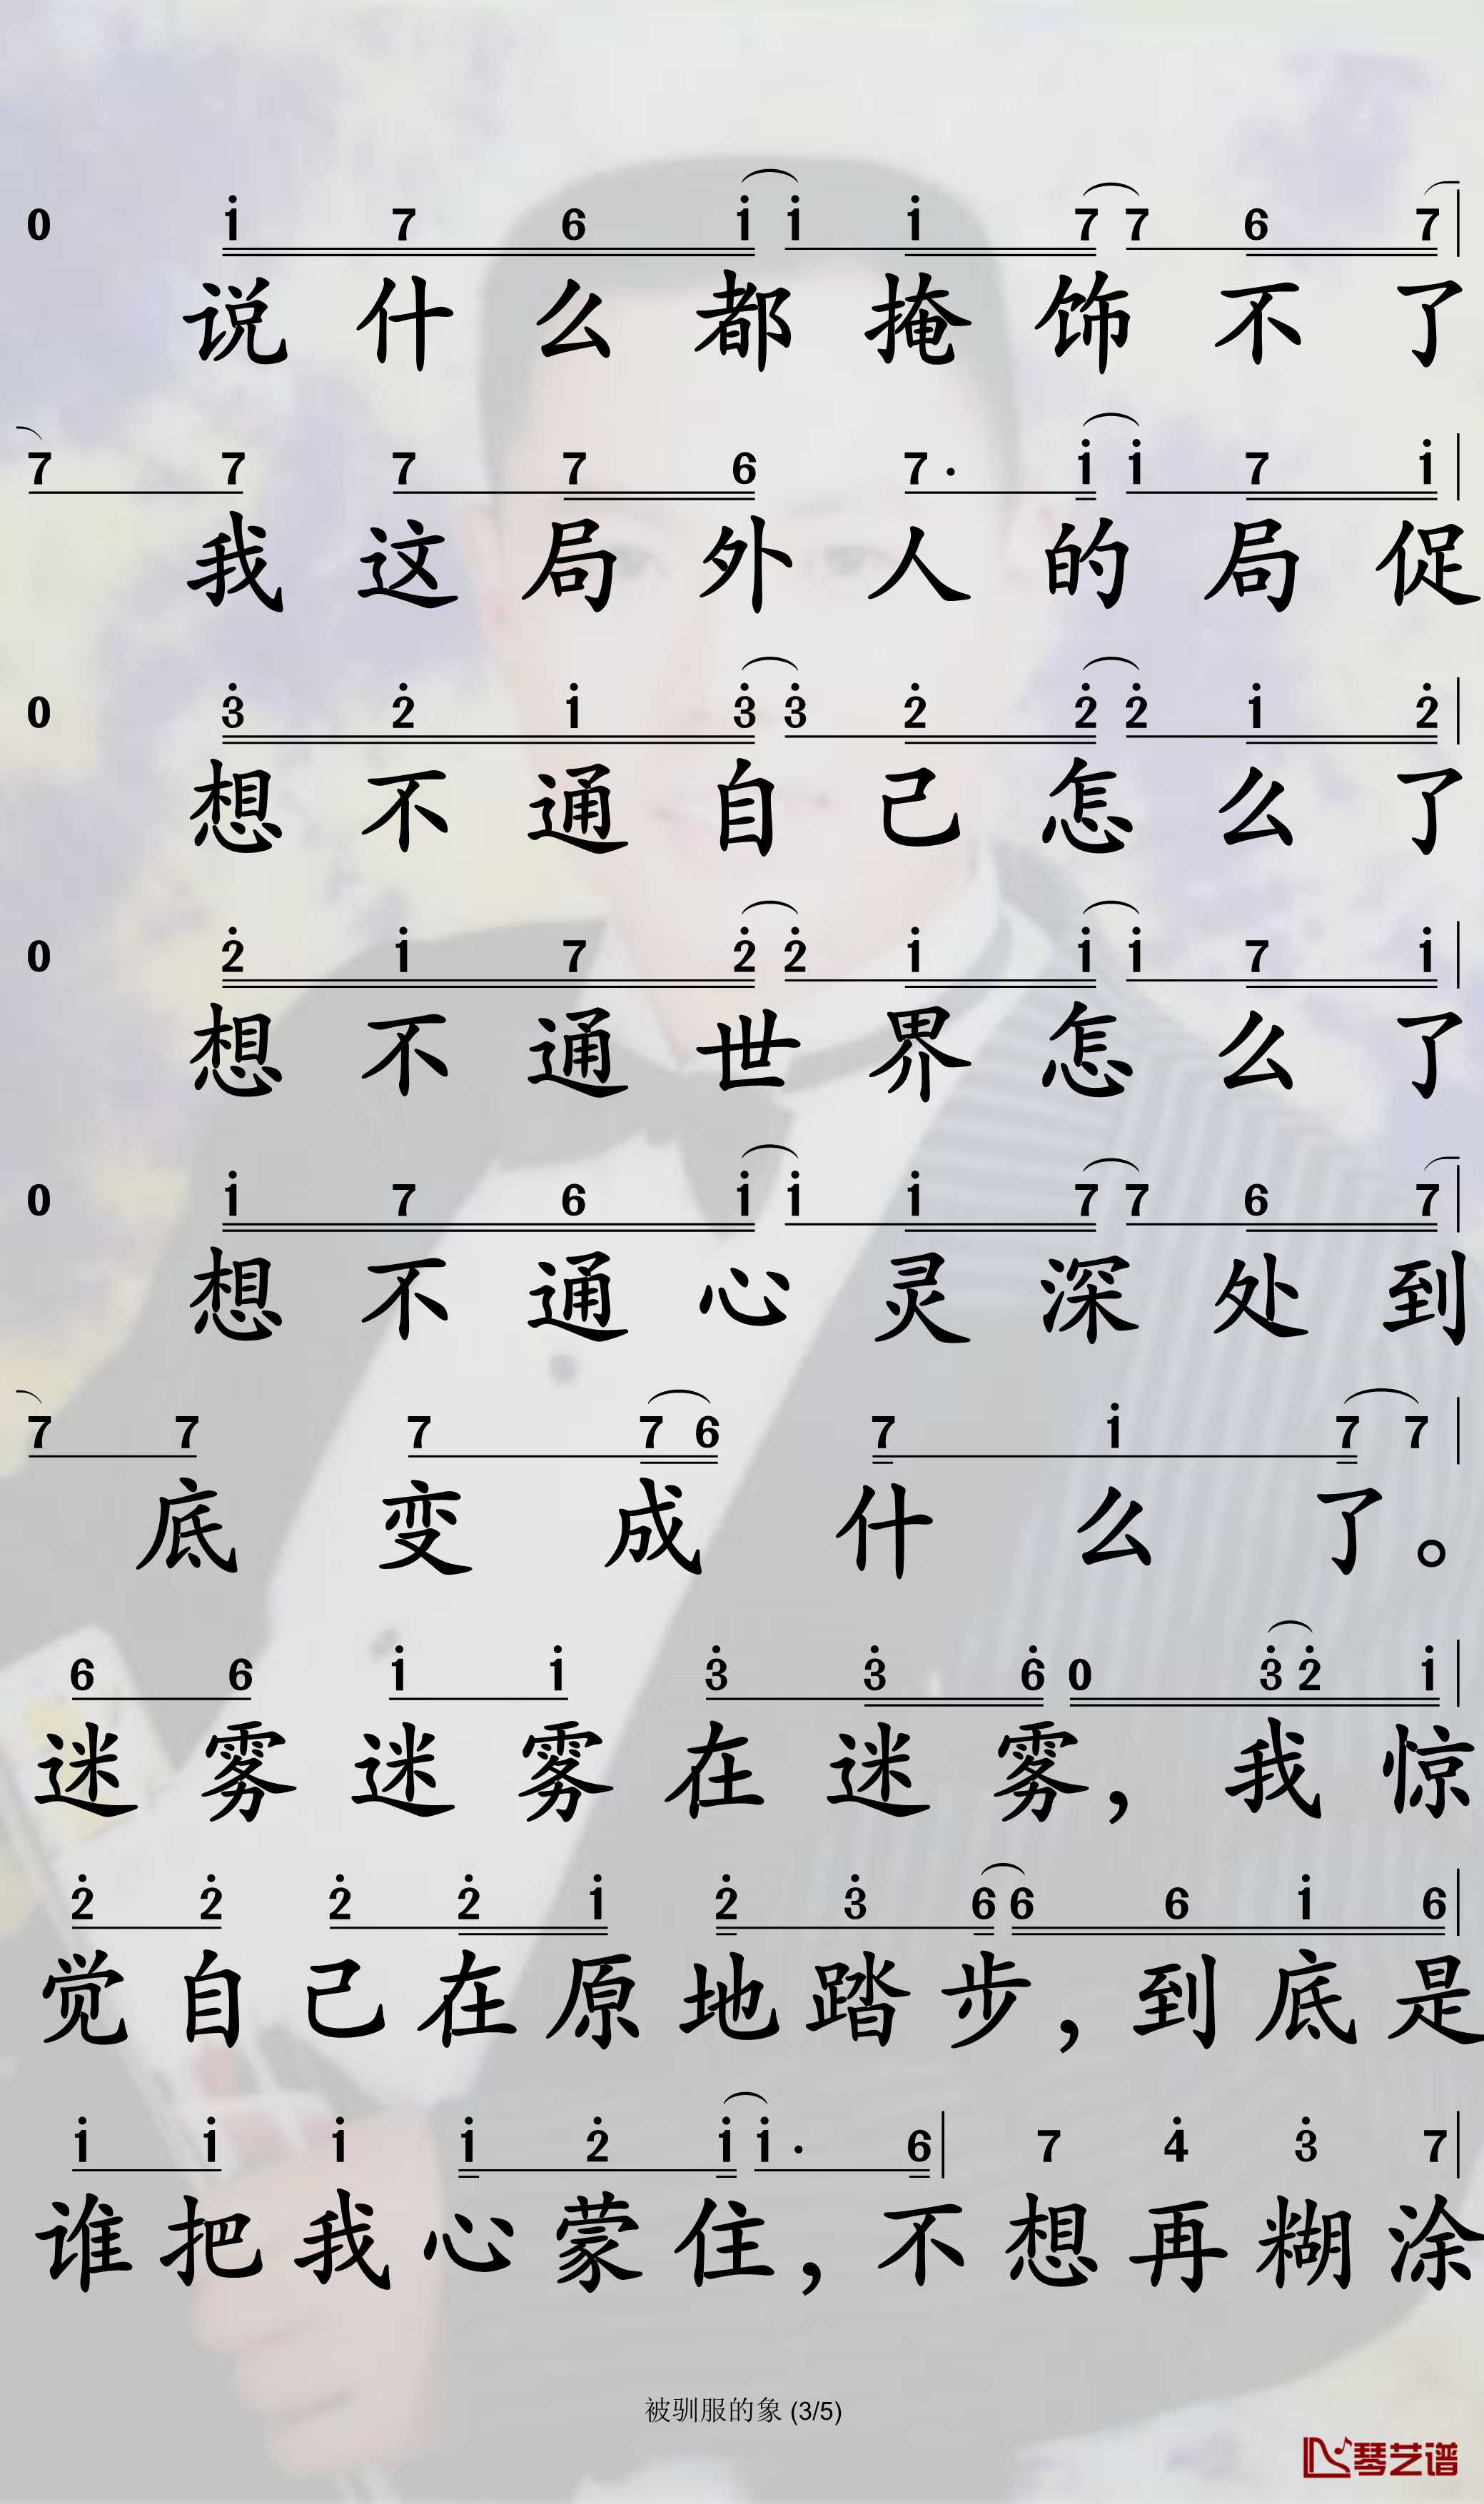 0 i 7 6 i i i 7 7 6 7
说什么都掩饰不了
7 7 7 7 6 7· i i 7 i
我这局外人的局促
0 3 2 i 3 3 2 2 2 i 2
想不通自己怎么了
0 2 i 7 2 2 i i i 7 i
想不通世界怎么了
0 i 7 6 i i i 7 7 6 7
想不通心灵深处到
7 7 7 7 6 7 i 7 7
底变成什么了。
6 6 i i 3 3 6 0 3 2 i
迷雾迷雾在迷雾，我惊
2 2 2 2 i 2 3 6 6 6 i 6
觉自己在原地踏步，到底是
i i i i 2 i i· 6 7 4 3 7
谁把我心蒙住，不想再糊涂
被驯服的象 (3/5)
琴艺谱